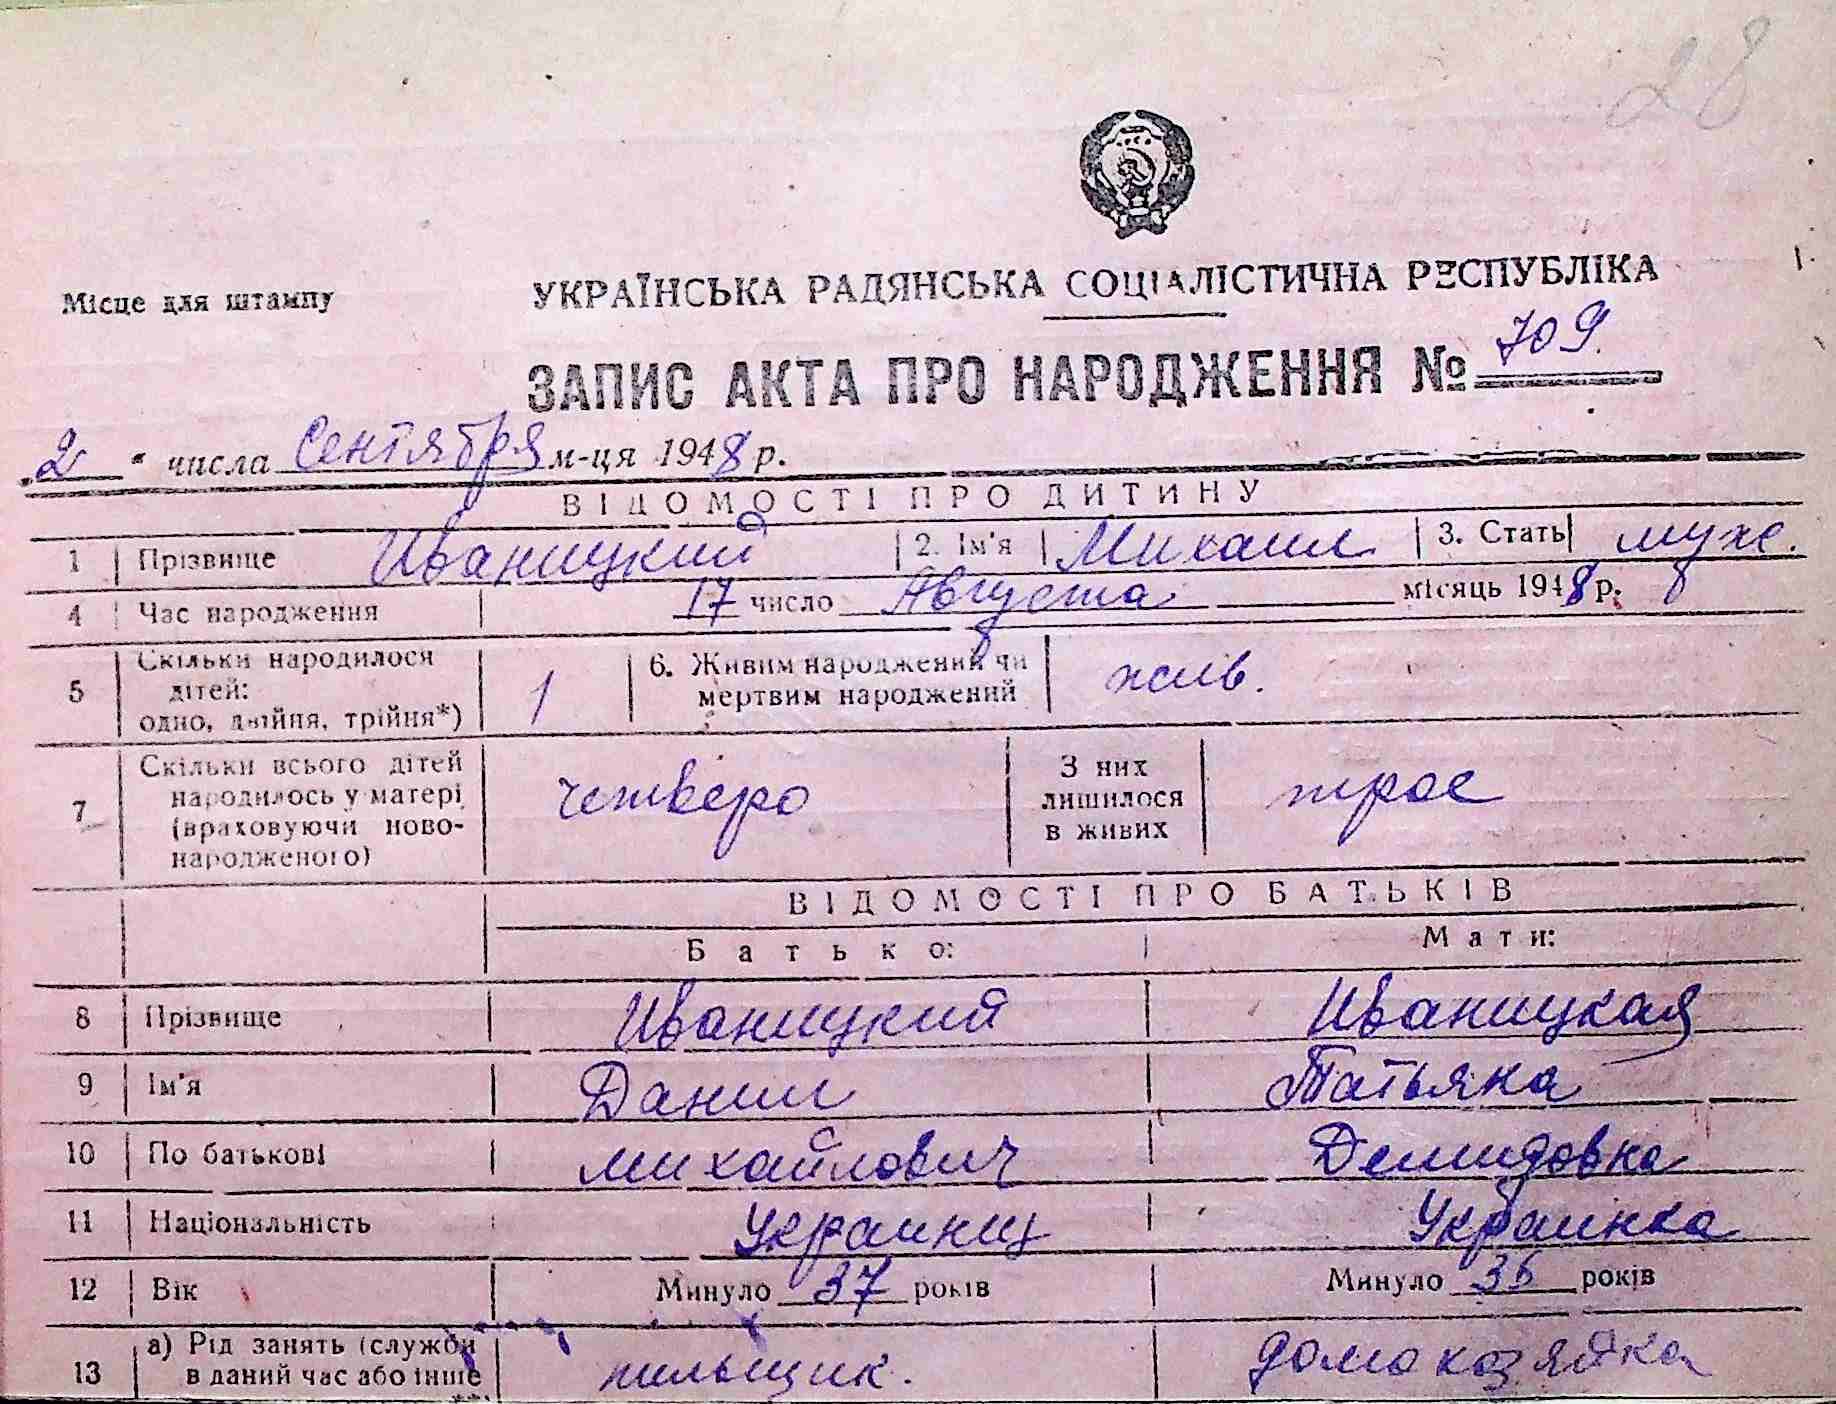 28
Місце для штампу
УКРАЇНСЬКА РАДЯНСЬКА СОЦІАЛІСТИЧНА РЕСПУБЛІКА
ЗАПИС АКТА ПРО НАРОДЖЕННЯ № 709
„2" числа Сентября м-ця 1948 р.
ВІДОМОСТІ ПРО ДИТИНУ
1 Прізвище Иваницкий 2. Ім'я Михаил 3. Стать муж.
4 Час народження 17 число Августа місяць 1948 р.
5 Скільки народилося дітей: одно, двійня, трійня*) 1 6. Живим народжений чи мертвим народжений жив.
7 Скільки всього дітей народилось у матері (враховуючи ново-народженого) четверо З них лишилося в живих трое
ВІДОМОСТІ ПРО БАТЬКІВ
Батько: Мати:
8 Прізвище Иваницкий Иваницкая
9 Ім'я Данил Татьяна
10 По батькові Михайлович Демидовна
11 Національність Украинец Украинка
12 Вік Минуло 37 років Минуло 36 років
13 а) Рід занять (служби в даний час або інше пильщик. домохозяйка